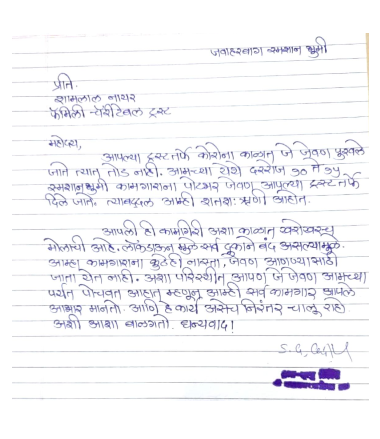 जवाहरबाग स्मशान भूमी
प्रति.
शामलाल नायर
फॅमिली चॅरीटेबल ट्रस्ट
महोदय,
आपल्या ट्रस्टतर्फे कोरोना काळात जे जेवण पुरवले
जाते त्यात तोड नाही. आमच्या येथे दररोज ३० ते ३५
स्मशानभूमी कामगारांना पोटभर जेवण आपल्या ट्रस्टतर्फे
दिले जाते. त्याबद्दल आम्ही शतशः ऋणी आहोत.
आपली ही कामगिरी अशा काळात खरोखरच
मोलाची आहे. लॉकडाऊन मुळे सर्व दुकाने बंद असल्यामुळे.
आम्हा कामगारांना कुठेही नास्ता, जेवण आणण्यासाठी
जाता येत नाही. अशा परिस्थीत आपण जे जेवण आमच्या
पर्यंत पोचवत आहात म्हणून आम्ही सर्व कामगार आपले
आभार मानतो. आणि हे कार्य असेच निरंतर चालू राहो
अशी आशा बाळगतो. धन्यवाद!